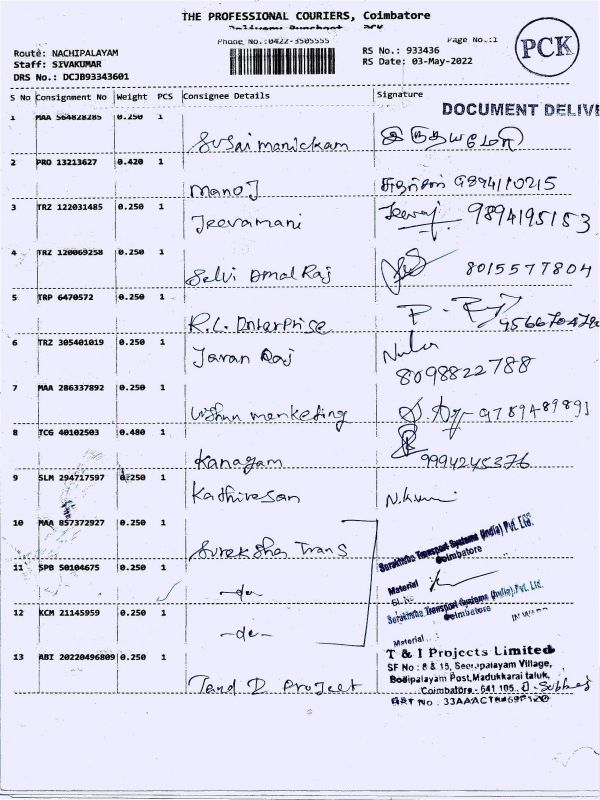 THE PROFESSIONAL COURIERS, Coimbatore
Phone No.:0422-3505555
Page No.:1
PCK
Route: NACHIPALAYAM
Staff: SIVAKUMAR
DRS No.: DCJB93343601
RS No.: 933436
RS Date: 03-May-2022
S No Consignment No Weight PCS Consignee Details Signature
DOCUMENT DELIVE
1 MAA 564828285 0.250 1 Susai manickam
2 PRO 13213627 0.420 1 Manoj 9894110215
3 TRZ 122031485 0.250 1 Jeevamani 9894195153
4 TRZ 120069258 0.250 1 Selvi Amal Raj 8015577804
5 TRP 6470572 0.250 1 R.L. Enterprise
6 TRZ 305401019 0.250 1 Raj 8098822788
7 MAA 286337892 0.250 1 marketing
8 TCG 40102503 0.480 1 Kanagam 9994245376
9 SLM 294717597 0.250 1 Kathiresan
10 MAA 857372927 0.250 1 Sureksha Trans
Suraksha Transport Systems (India) Pvt. Ltd.
Coimbatore
11 SPB 50104675 0.250 1 -do-
Material
Sl. No
Suraksha Transport Systems (India) Pvt. Ltd.
Coimbatore
12 KCM 21145959 0.250 1 -do-
INWARD
Material
13 ABI 20220496809 0.250 1 Tand D Project
T & I Projects Limited
SF No : 8 & 15, Seerapalayam Village,
Bodipalayam Post, Madukkarai taluk,
Coimbatore - 641 105.